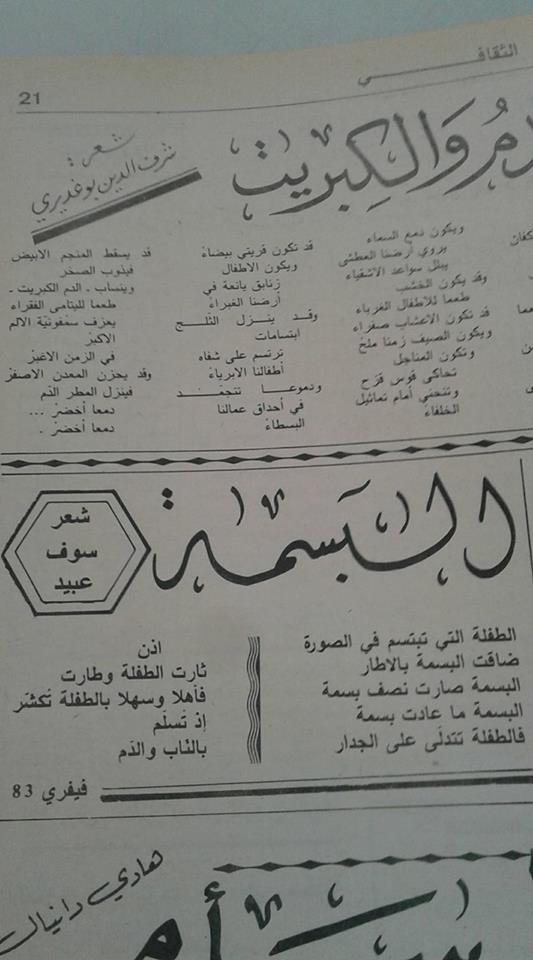 الثقافـــي
21
والكبريت
شعر:
شرف الدين بوغديري
ويكون دمع السماء
يروي أرضنا العطشى
يبلل سواعد الاشقياء
وقد يكون الخشب
طعما للأطفال الغرباء
قد تكون الاعشاب صفراء
ويكون الصيف زمنا ملح
وتكون المناجل
تحاكي قوس قزح
وتنحني أمام تماثيل
الخلفاء
قد تكون قريتي بيضاء
ويكون الاطفال
زنابق يانعة في
أرضنا الغبراء
وقد ينزل الثلج
ابتسامات
ترتسم على شفاه
أطفالنا الابرياء
ودموعا تتجمد
في أحداق عمالنا
البسطاء
قد يسقط المنجم الابيض
فيذوب الصخر
وينساب ـ الدم الكبريت ـ
طعما لليتامى الفقراء
يعزف سمفونية الالم
الاكبر
في الزمن الاغبر
وقد يحزن المعدن الاصفر
فينزل المطر الدم
دمعا أخضر ...
دمعا أخضر .
البسمة
شعر
سوف
عبيد
الطفلة التي تبتسم في الصورة
ضاقت البسمة بالاطار
البسمة صارت نصف بسمة
البسمة ما عادت بسمة
فالطفلة تتدلّى على الجدار
اذن
ثارت الطفلة وطارت
فأهلا وسهلا بالطفلة تكشّر
إذ تسلّم
بالنّاب والدّم
فيفري 83
هادي دانيال